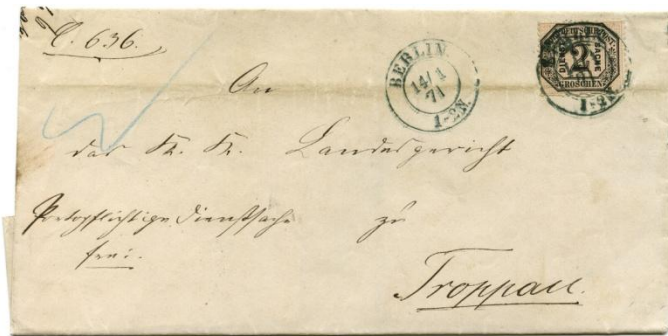 C. 636.
BERLIN
14/1
71
1-2N.
DIENSTSACHE
2
GROSCHEN
1-2N
An
das K. K. Landesgericht
Portopflichtige Dienstsache zu
frei.
Troppau.